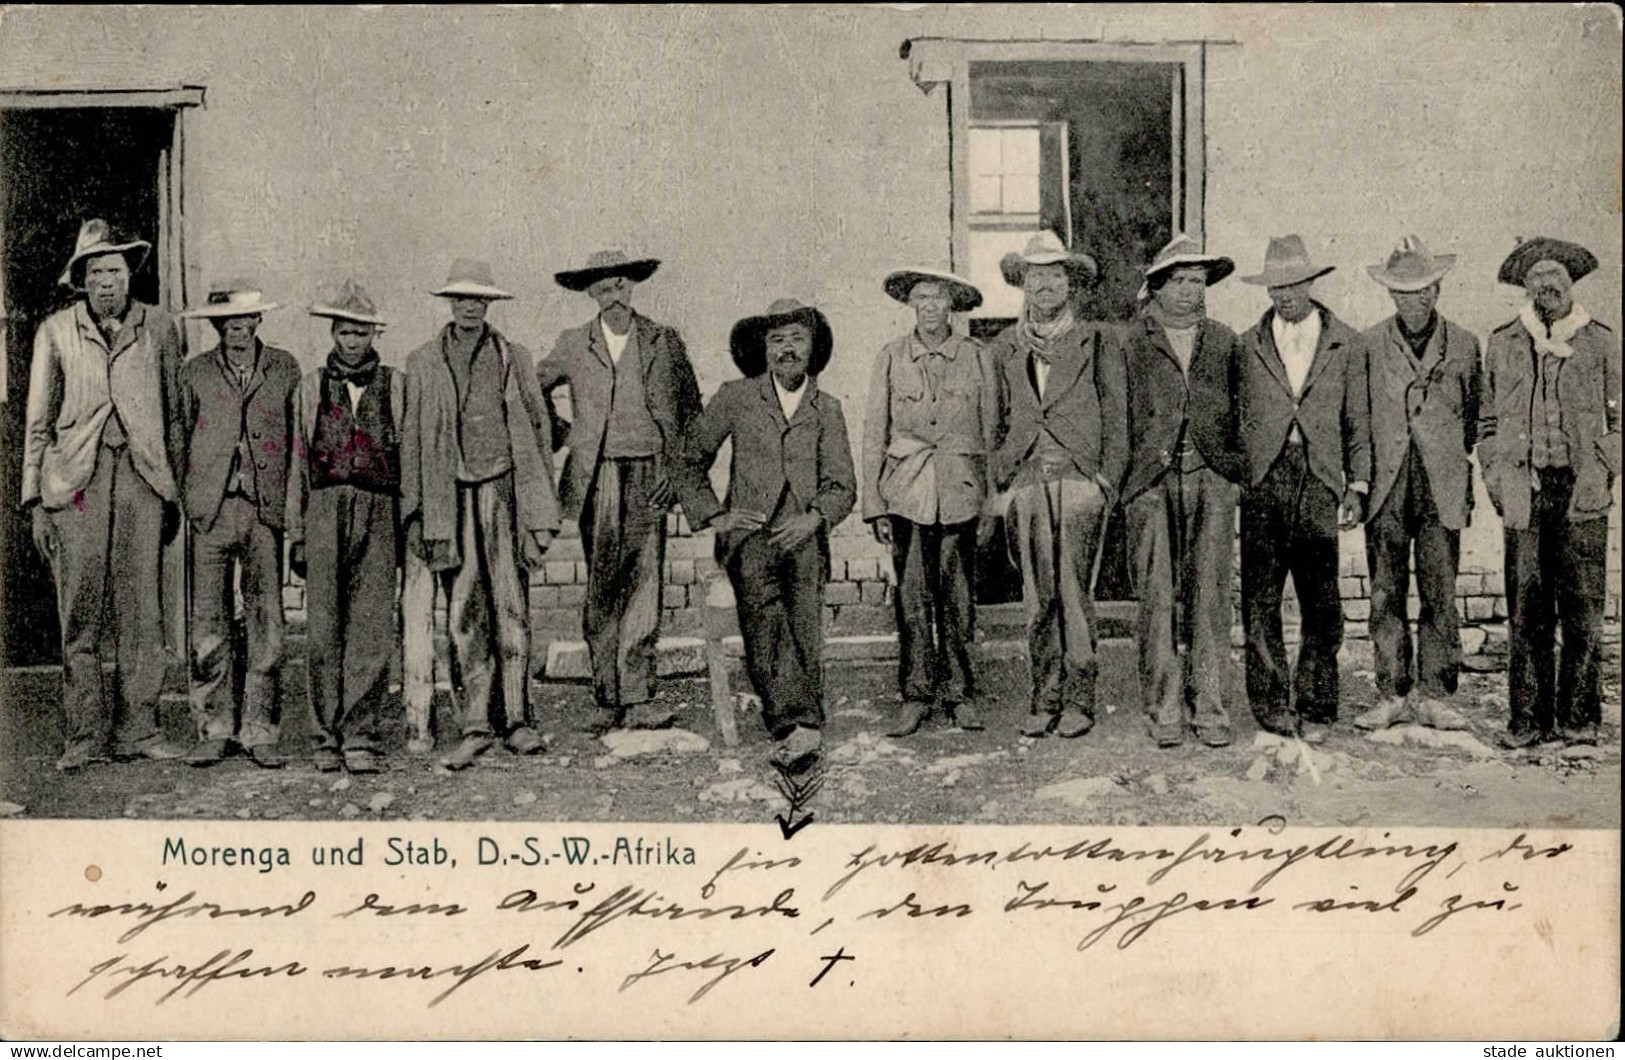 Morenga und Stab, D.-S.-W.-Afrika Ein Hottentottenhäuptling, der
während dem Aufstande, den Truppen viel zu
schaffen machte. Jetzt †.
delcampe.net
stade auktionen